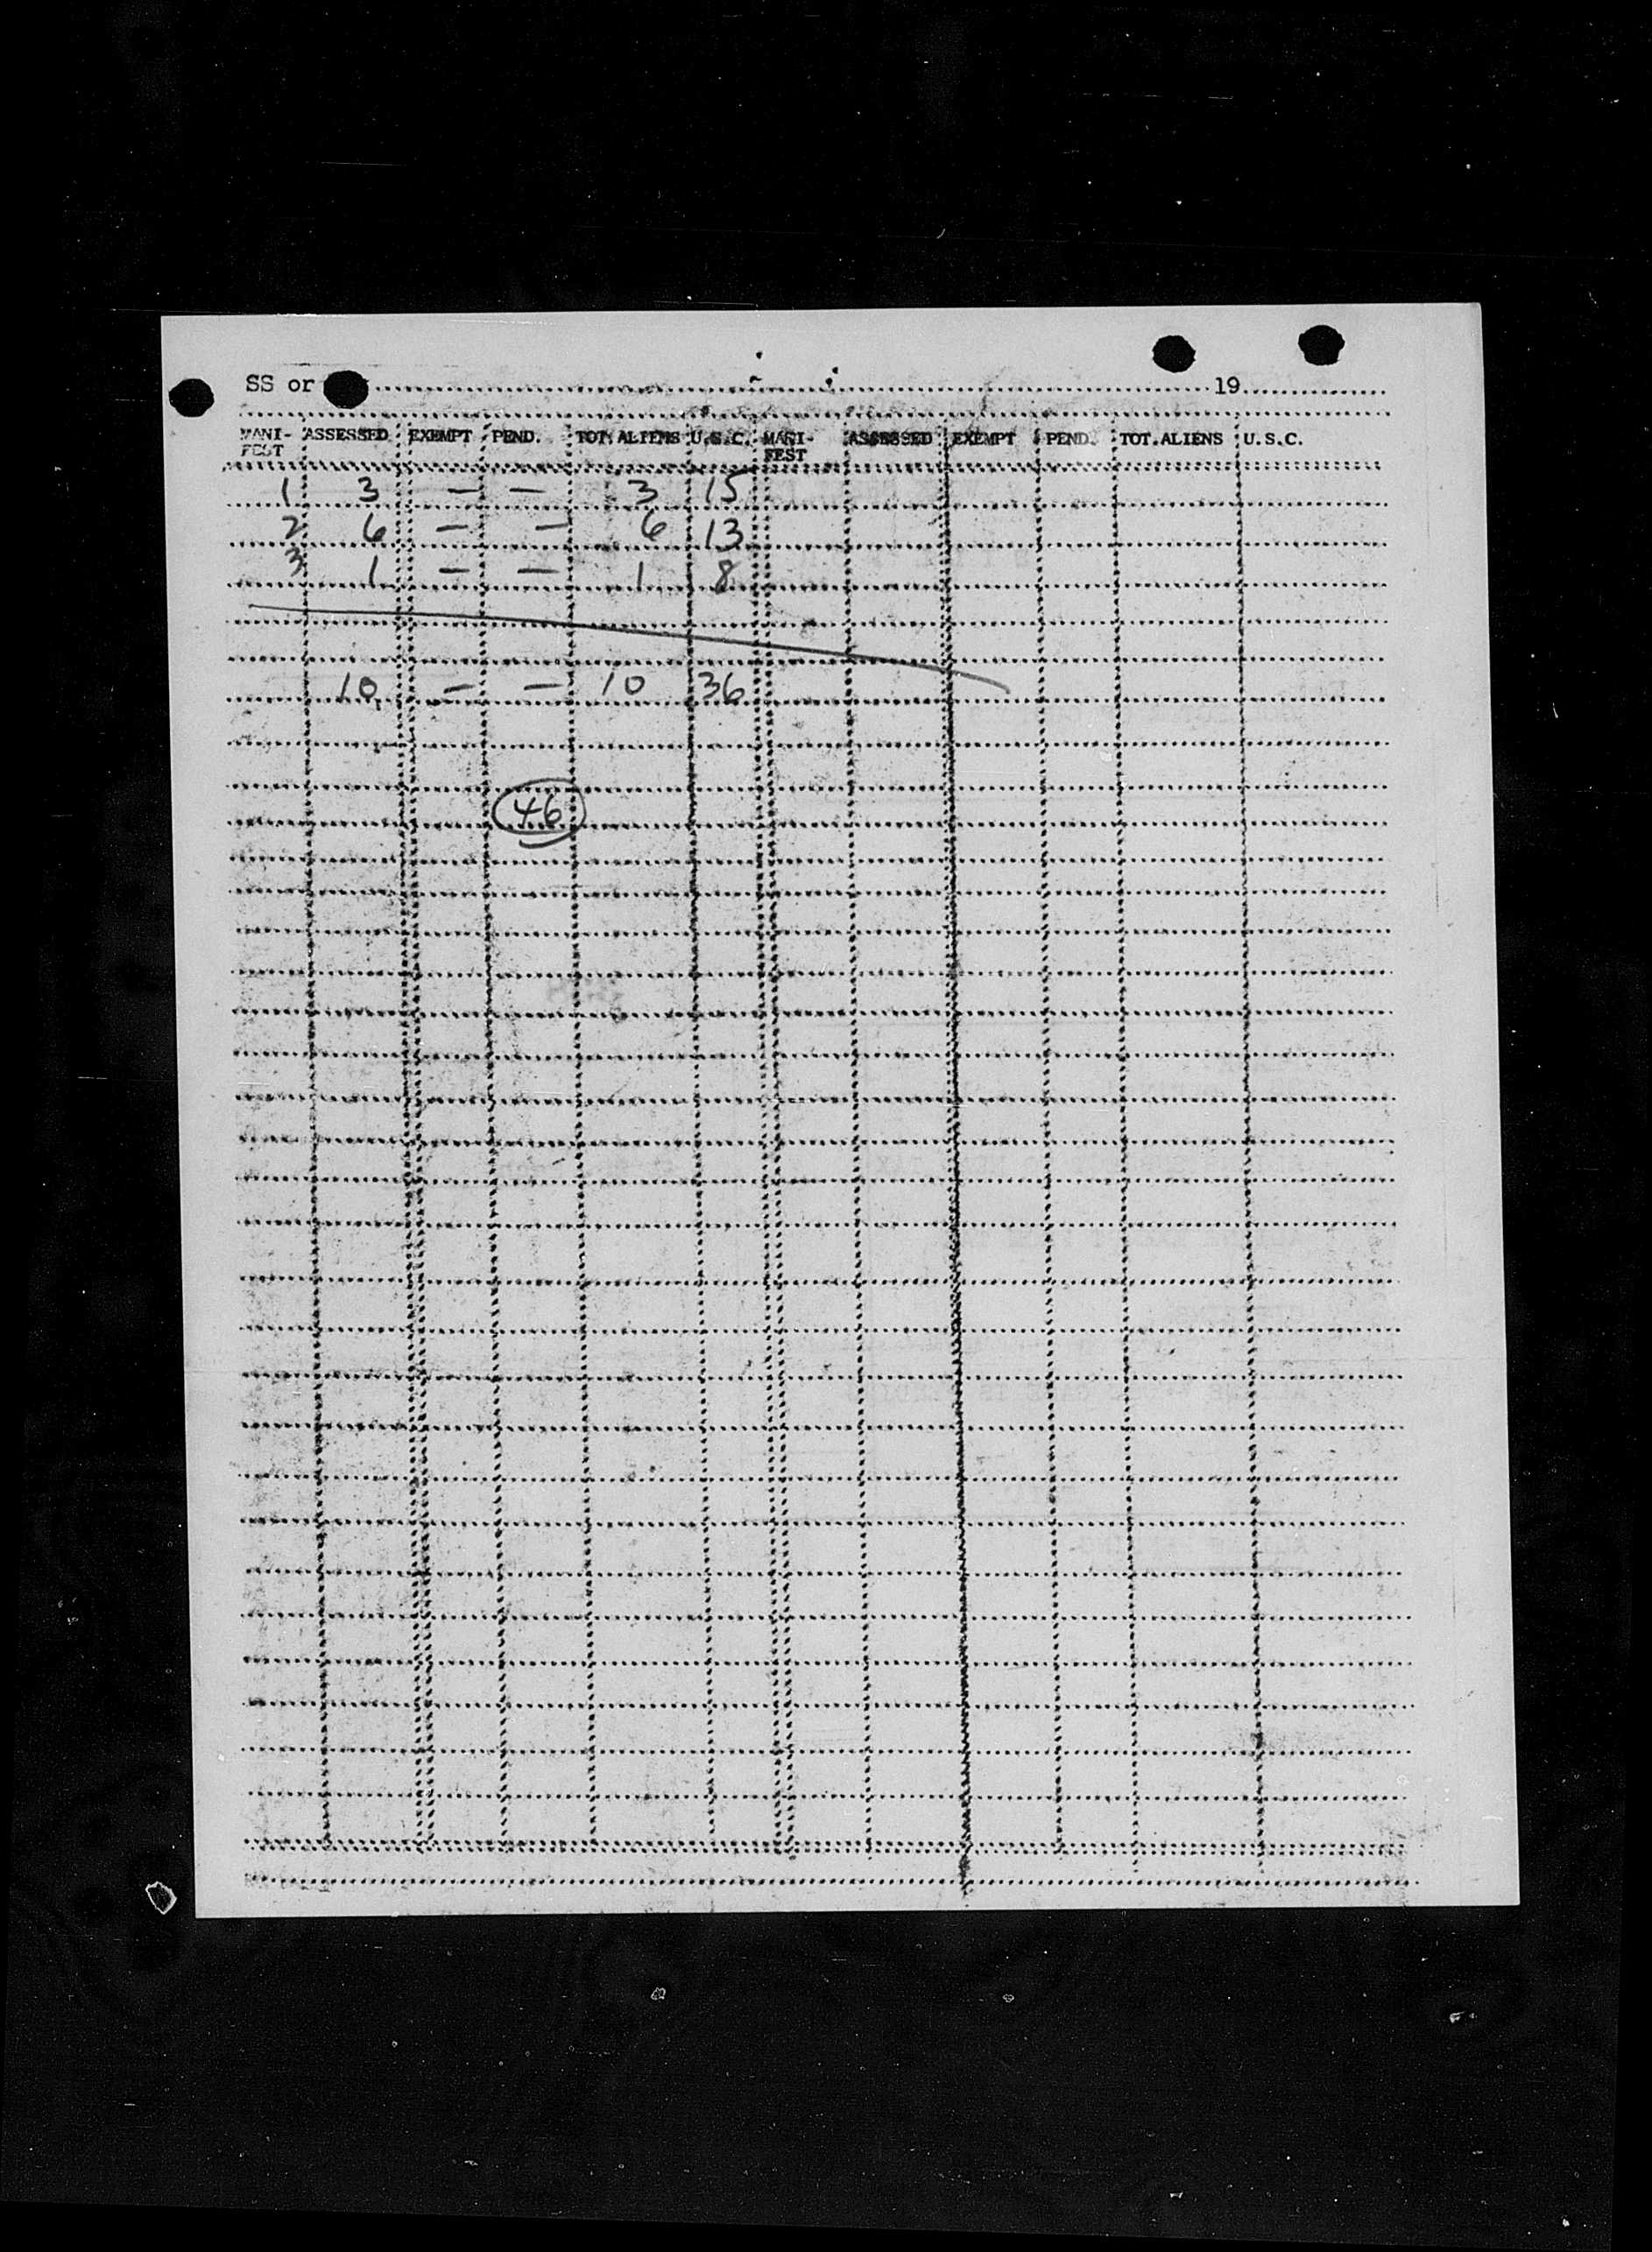 SS or 19
MANI- ASSESSED EXEMPT PEND. TOT. ALIENS U.S.C. MANI- ASSESSED EXEMPT PEND. TOT.ALIENS U.S.C.
FEST FEST
1 3 — — 3 15
2 6 — — 6 13
3 1 — — 1 8
10 — — 10 36
46